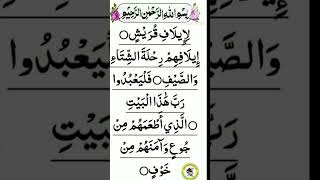 بِسْمِ اللهِ الرَّحْمٰنِ الرَّحِيْمِ
لِإِيلَافِ قُرَيْشٍ○
إِيلَافِهِمْ رِحْلَةَ الشِّتَاءِ
وَالصَّيْفِ○فَلْيَعْبُدُوا
رَبَّ هٰذَا الْبَيْتِ
○الَّذِي أَطْعَمَهُمْ مِنْ
جُوعٍ وَآمَنَهُمْ مِنْ
خَوْفٍ○